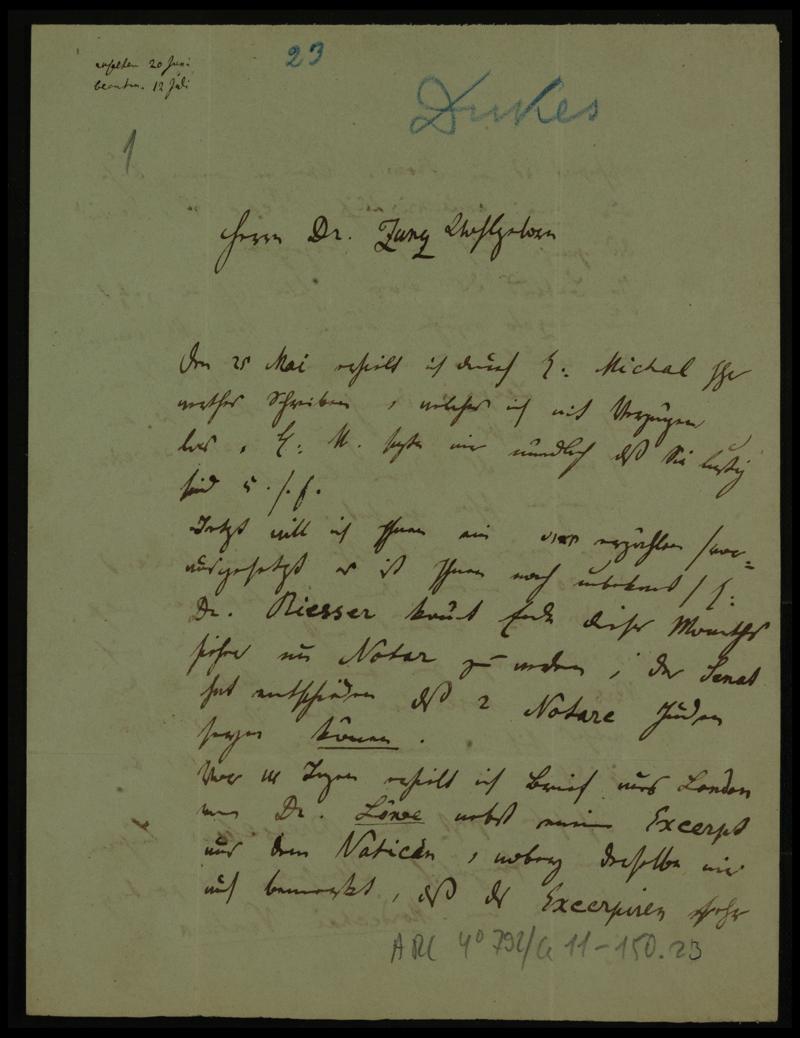 erhalten 20 Juni
beantw. 12 Juli
23
Dukes
1
Herrn Dr. Zunz Wohlgeborn
Den 25 Mai erhielt ich durch H: Michal Ihr
werthes Schreiben, welches ich mit Vergnügen
las, H: M. sagte mir mündlich daß Sie lustig
sind
Jetzt will ich Ihnen ein erzählen / vor=
ausgesetzt es ist Ihnen noch unbekant / H:
Dr. Riesser komt Ende dieses Monaths
hieher um Notar zu werden, der Senat
hat entschieden daß 2 Notare Juden
seyn können.
Vor Tagen erhielt ich Brief aus London
von Dr. Löwe nebst einem Excerpt
aus dem Vatican, wobey derselbe mir
auch bemerkt, daß das Excerpiren sehr
ARC 4º 792/G 11-150.23